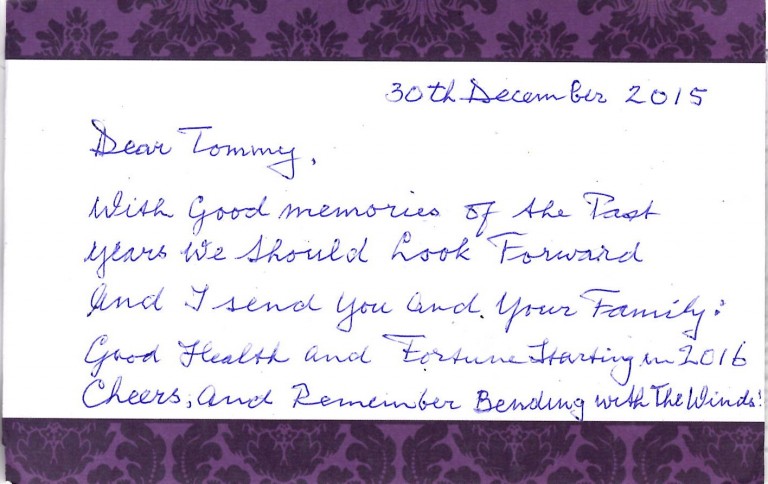 30th December 2015
Dear Tommy,
With Good memories of the Past
years We Should Look Forward
And I send You and. Your Family:
Good Health and Fortune Starting in 2016
Cheers, And Remember Bending with The Winds!